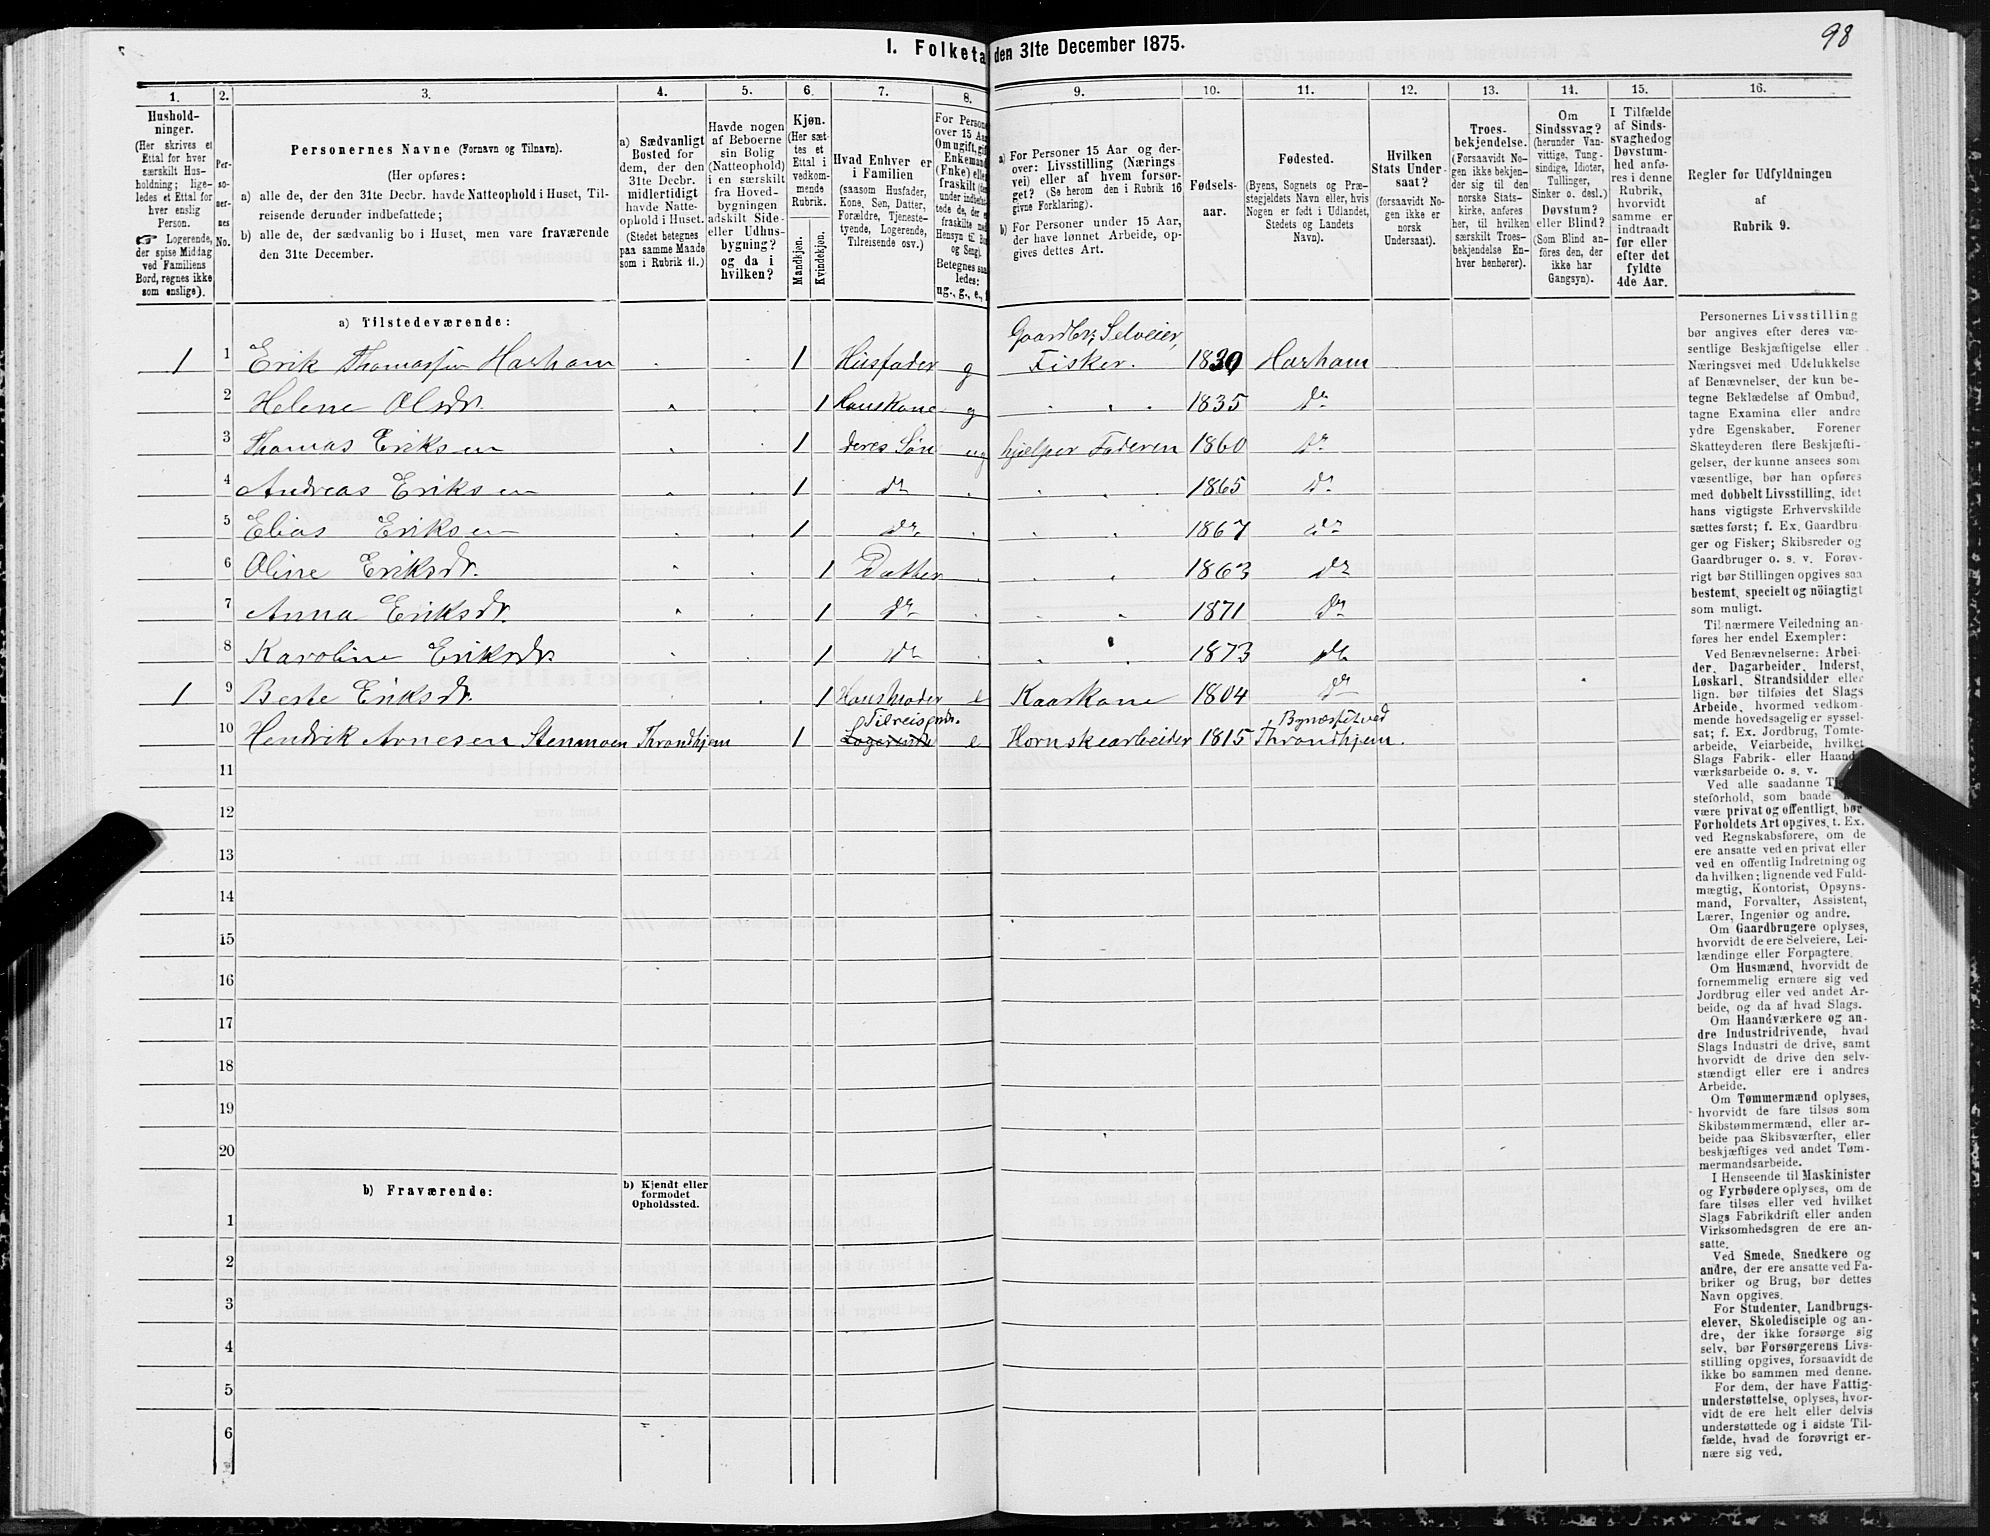 98
I. Folketa den 31te December 1875.
1. 2. 3. 4. 5. 6. 7. 8. 9. 10. 11. 12. 13. 14. 15. 16.
Hushold-
ninger.
(Her skrives et
Ettal for hver
særskilt Hus-
holdning; lige-
ledes et Ettal for
hver enslig
Person.
Logerende,
der spise Middag
ved Familiens
Bord, regnes ikke
som enslige).
Per-
so-
ner-
nes
No.
Personernes Navne (Fornavn og Tilnavn).
(Her opføres:
a) alle de, der den 31te Decbr. havde Natteophold i Huset, Til-
reisende derunder indbefattede;
b) alle de, der sædvanlig bo i Huset, men vare fraværende
den 31te December.
a) Sædvanligt
Bosted for
dem, der den
31te Decbr.
midlertidigt
havde Natte-
ophold i Huset.
(Stedet betegnes
paa samme Maade
som i Rubrik 11.)
Havde nogen
af Beboerne
sin Bolig
(Natteophold)
i en særskilt
fra Hoved-
bygningen
adskilt Side-
eller Udhus-
bygning?
og da i
hvilken?
Kjøn.
(Her sæt-
tes et
Ettal i
vedkom-
mende
Rubrik.
Mandkjøn.
Kvindekjøn.
Hvad Enhver er
i Familien
(saasom Husfader,
Kone, Søn, Datter,
Forældre, Tjeneste-
tyende, Logerende,
Tilreisende osv.)
For Persone
over 15 Aar
Om ugift, gift
Enkemand
(Enke) elle
fraskilt
Betegnes saa
ledes:
ug., g., e., f
a) For Personer 15 Aar og der-
over: Livsstilling (Nærings
vei) eller af hvem forsør-
get? (Se herom den i Rubrik 16
givne Forklaring).
b) For Personer under 15 Aar,
der have lønnet Arbeide, op-
gives dettes Art.
Fødsels-
aar.
Fødested.
(Byens, Sognets og Præ-
stegjeldets Navn eller, hvis
Nogen er født i Udlandet,
Stedets og Landets
Navn).
Hvilken
Stats Under-
saat?
(forsaavidt No-
gen ikke er
norsk
Undersaat).
Troes-
bekjendelse.
(Forsaavidt No-
gen ikke bekjen-
der sig til den
norske Stats-
kirke, anføres
her, til hvilken
særskilt Troes-
bekjendelse En-
hver henhører).
Om
Sindssvag?
(herunder Van-
vittige, Tung-
sindige, Idioter,
Tullinger,
Sinker o. desl.)
Døvstum?
eller Blind?
(Som Blind an-
føres den, der
ikke har
Gangsyn).
I Tilfælde
af Sinds-
svaghedog
Døvstum-
hed anfø-
res i denne
Rubrik,
hvorvidt
samme er
indtraadt
før eller
efter det
fyldte
4de Aar.
Regler for Udfyldningen
af
Rubrik 9.
a) Tilstedeværende:
Gaardbr; Selveier,
1 1 Erik Thomassen Harham 1 Husfader g Fisker. 1830 Harham
2 Helene Olsdr. 1 Huuskone g 1835 do
3 Thomas Eriksen 1 deres Søn ug hjælper Faderen 1860 do
4 Andreas Eriksen 1 do 1865 do
5 Elias Eriksen 1 do 1867 do
6 Oline Eriksdr. 1 Datter 1863 do
7 Anna Eriksdr. 1 do 1871 do
8 Karoline Eriksdr. 1 do 1873 do
1 9 Berte Eriksdr. 1 e Kaarkone 1804 do
Tilreisende. Bynæsset ved
10 Hendrik Arnesen Stenmoen Throndhjem 1 Logerende e Hornskearbeider 1815 Throndhjem.
11
12
13
14
15
16
17
18
19
20
b) Fraværende:
b) Kjendt eller
formodet
Opholdssted.
1
2
3
4
5
6
Personernes Livsstilling
bør angives efter deres væ-
sentlige Beskjæftigelse eller
Næringsvei med Udelukkelse
af Benævnelser, der kun be-
tegne Beklædelse af Ombud,
tagne Examina eller andre
ydre Egenskaber. Forener
Skatteyderen flere Beskjæfti-
gelser, der kunne ansees som
væsentlige, bør han opføres
med dobbelt Livsstilling, idet
hans vigtigste Erhvervskilde
sættes først; f. Ex. Gaardbru-
ger og Fisker; Skibsreder og
Gaardbruger o. s. v. Forøv-
rigt bør Stillingen opgives saa
bestemt, specielt og nöiagtigt
som muligt.
Til nærmere Veiledning an-
føres her endel Exempler:
Ved Benævnelserne: Arbei-
der, Dagarbeider, Inderst,
Løskarl, Strandsidder eller
lign. bør tilføies det Slags
Arbeide, hvormed vedkom-
mende hovedsagelig er syssel-
sat; f. Ex. Jordbrug, Tomte-
arbeide, Veiarbeide, hvilket
Slags Fabrik- eller Haand-
værksarbeide o. s. v.
Ved alle saadanne Tje-
steforhold, som baade
være privat og offentligt, bør
Forholdets Art opgives, t. Ex.
ved Regnskabsførere, om de
ere ansatte ved en privat eller
ved en offentlig Indretning og
da hvilken; lignende ved Fuld-
mægtig, Kontorist, Opsyns-
mand, Forvalter, Assistent,
Lærer, Ingeniør og andre.
Om Gaardbrugere oplyses,
hvorvidt de ere Selveiere, Lei-
lændinge eller Forpagtere.
Om Husmænd, hvorvidt de
fornemmelig ernære sig ved
Jordbrug eller ved andet Ar-
beide, og da af hvad Slags.
Om Haandværkere og an-
dre Industridrivende, hvad
Slags Industri de drive, samt
hvorvidt de drive den selv-
stændigt eller ere i andres
Arbeide.
Om Tømmermænd oplyses,
hvorvidt de fare tilsøs som
Skibstømmermænd, eller ar-
beide paa Skibsværfter, eller
beskjæftiges ved andet Tøm-
mermandsarbeide.
I Henseende til Maskinister
og Fyrbødere oplyses, om de
fare tilsøs eller ved hvilket
Slags Fabrikdrift eller anden
Virksomhedsgren de ere an-
satte.
Ved Smede, Snedkere og
andre, der ere ansatte ved Fa-
briker og Brug, bør dettes
Navn opgives.
For Studenter, Landbrugs-
elever, Skoledisciple og an-
dre, der ikke forsørge sig
selv, bør Forsørgerens Livs-
stilling opgives, forsaavidt de
ikke bo sammen med denne.
For dem, der have Fattig-
understøttelse, oplyses, hvor-
vidt de ere helt eller delvis
understøttede og i sidste Til-
fælde, hvad de forøvrigt er-
nære sig ved.